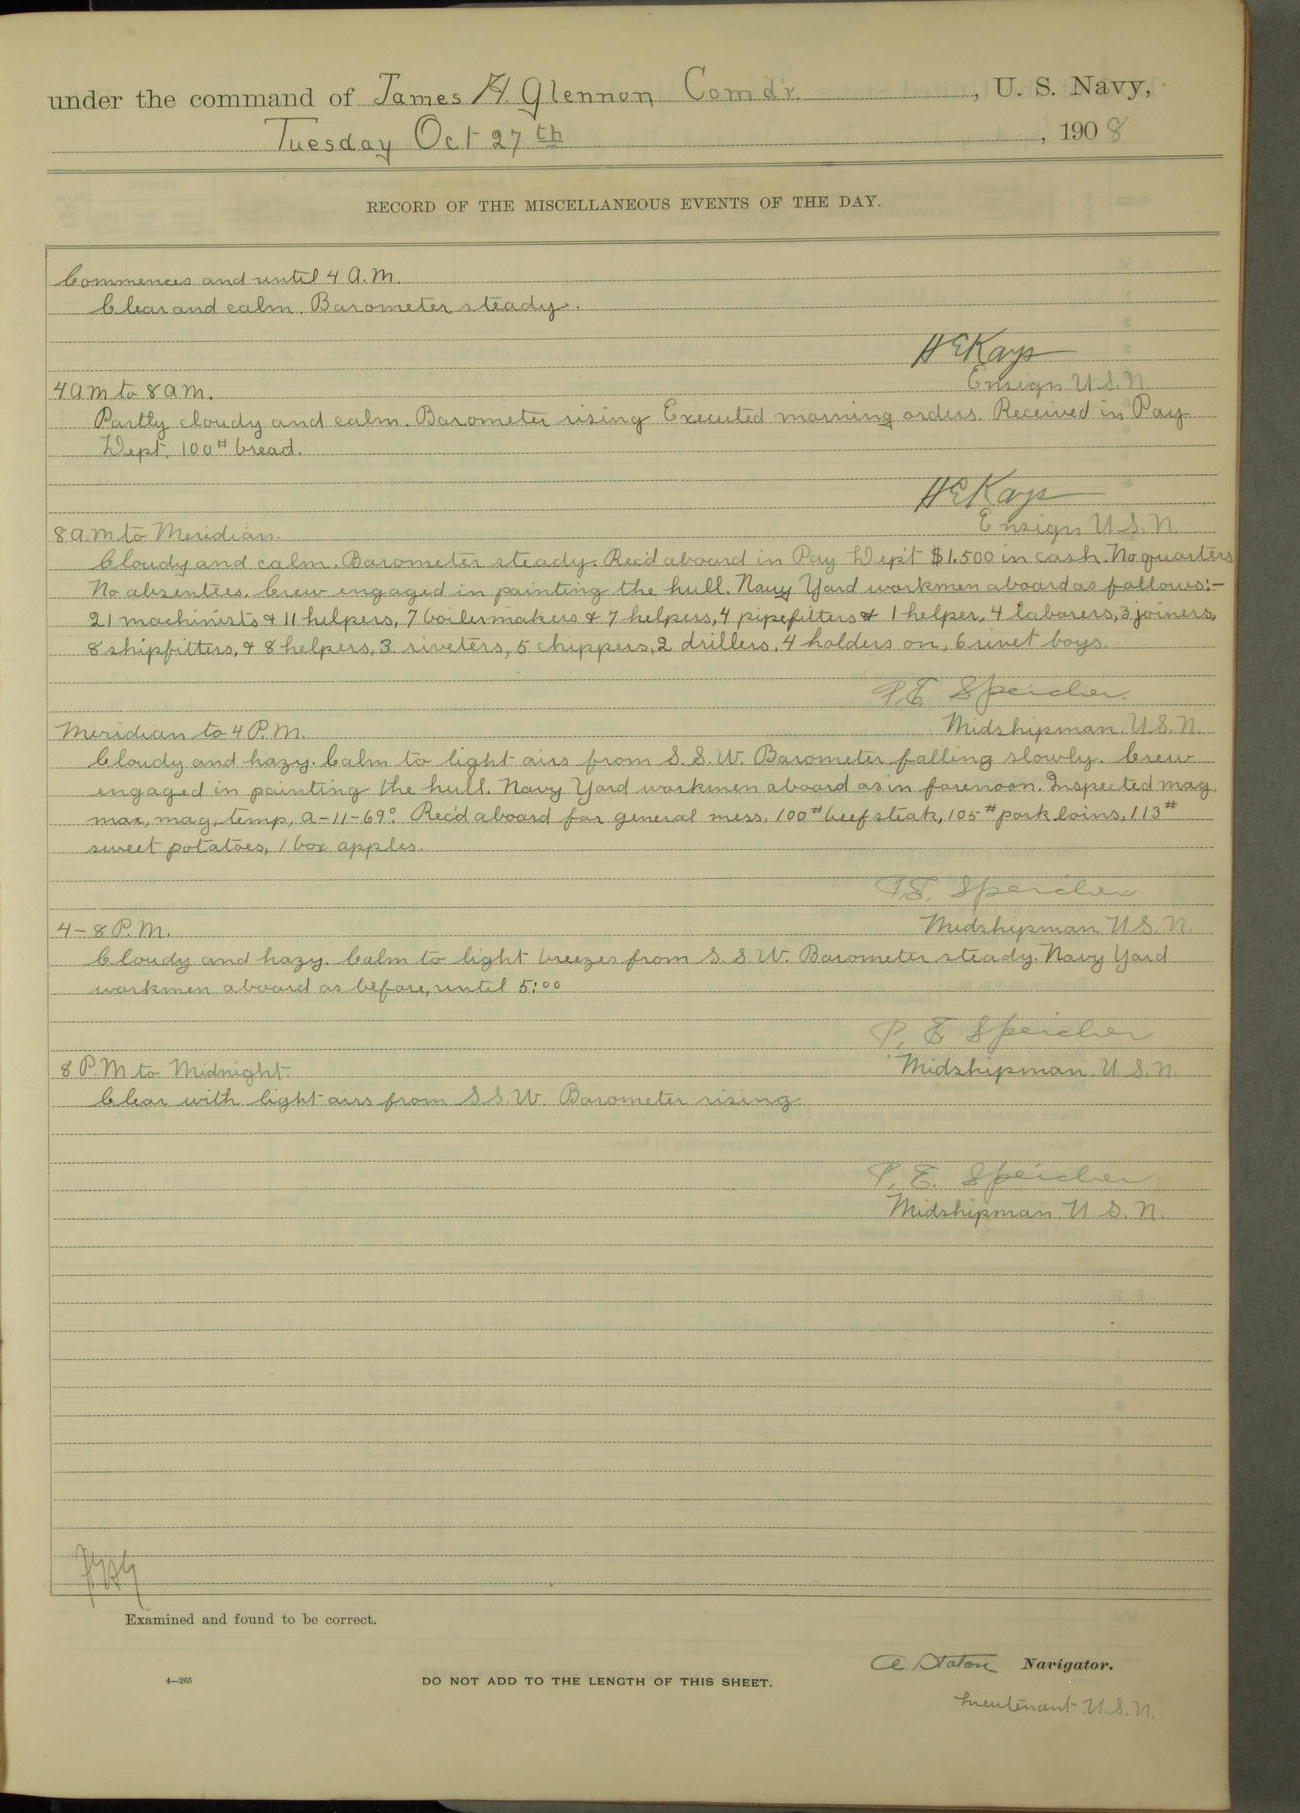 under the command of James H. Glennon Comdr. , U. S. Navy,
Tuesday Oct 27th , 1908
RECORD OF THE MISCELLANEOUS EVENTS OF THE DAY.
Commences and until 4 A.M.
Clear and calm. Barometer steady.
H E Kays
Ensign U.S.N.
4 a m to 8 a m.
Partly cloudy and calm. Barometer rising Executed morning orders. Received in Pay
Dept. 100# bread.
H E Kays
Ensign U.S.N.
8 a.m to Meridian.
Cloudy and calm. Barometer steady. Rec'd aboard in Pay Dep't $1.500 in cash. No quarters
No absentees. Crew engaged in painting the hull. Navy Yard workmen aboard as follows:-
21 machinists & 11 helpers, 7 boilermakers & 7 helpers, 4 pipefitters & 1 helper, 4 laborers, 3 joiners,
8 shipfitters, & 8 helpers, 3 riveters, 5 chippers, 2 drillers, 4 holders on, 6 rivet boys.
P.E. Speicher.
Midshipman. U.S.N.
Meridian to 4 P.M.
Cloudy and hazy. Calm to light airs from S.S.W. Barometer falling slowly. Crew
engaged in painting the hull. Navy Yard workmen aboard as in forenoon. Inspected mag.
max, mag, temp, A-11-69° Rec'd aboard for general mess, 100# beef steak, 105# pork loins, 113#
sweet potatoes, 1 box apples.
P.E. Speicher
Midshipman U.S.N.
4-8 P.M.
Cloudy and hazy. Calm to light breezes from S.S.W. Barometer steady. Navy Yard
workmen aboard as before, until 5:00
P. E Speicher
Midshipman. U.S.N.
8 P.M to Midnight.
Clear with light airs from S S.W. Barometer rising.
P. E. Speicher
Midshipman. U.S.N.
Examined and found to be correct.
A. Staton Navigator.
4—265
DO NOT ADD TO THE LENGTH OF THIS SHEET.
Lieutenant U.S.N.